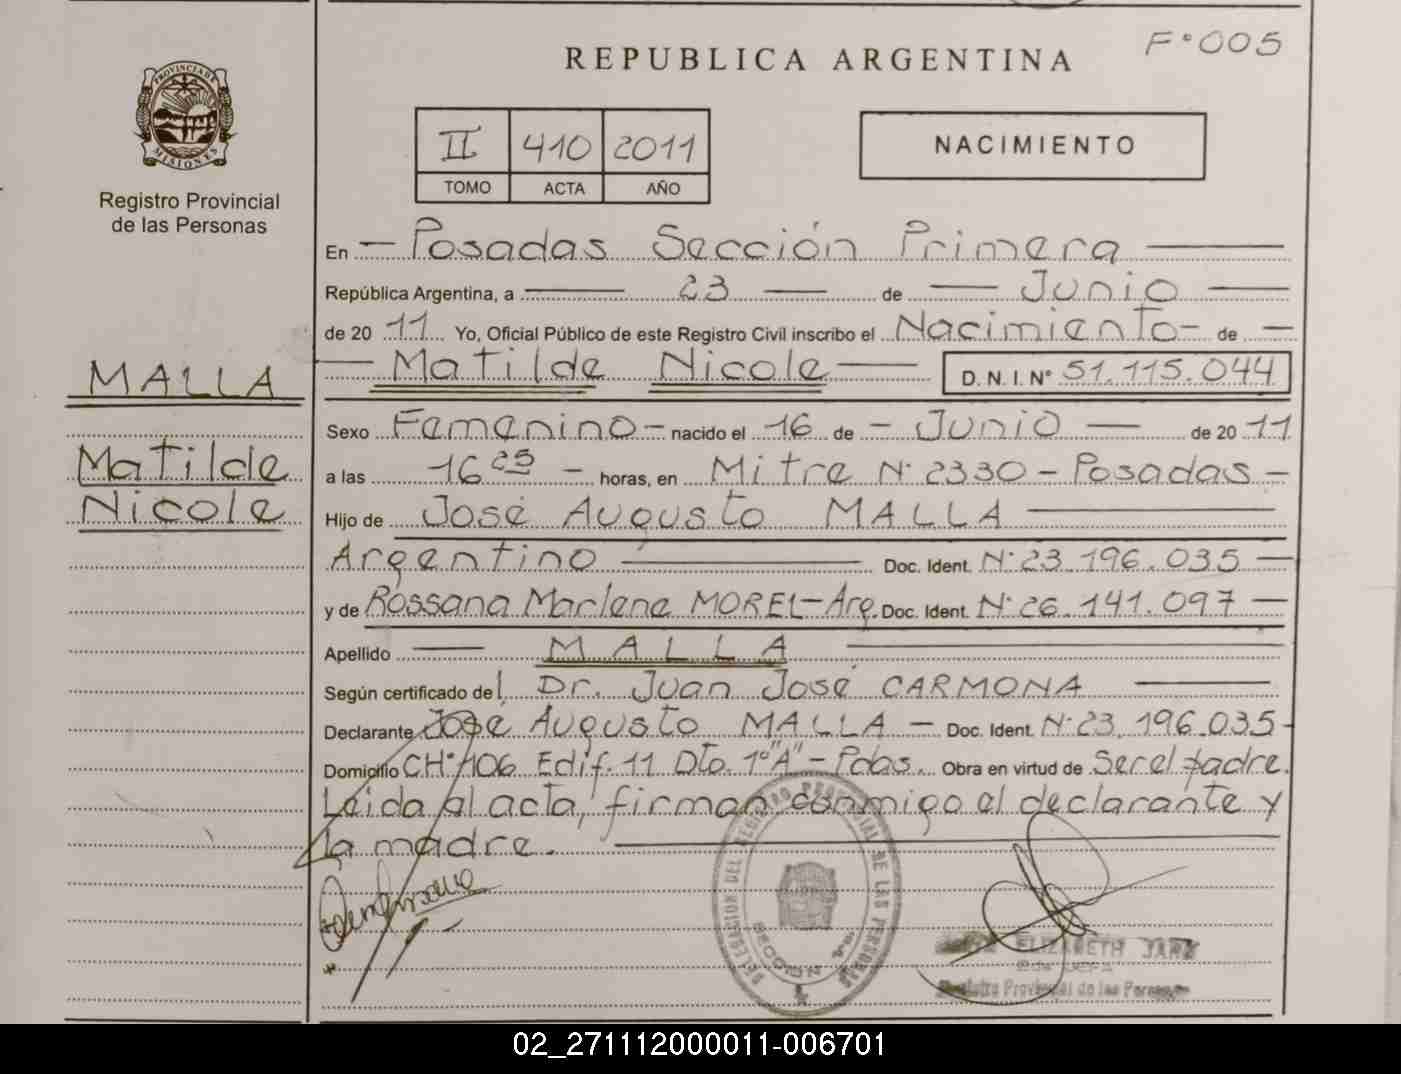 F°005
REPUBLICA ARGENTINA
PROVINCIA DE
MISIONES
II 410 2011
TOMO ACTA AÑO
NACIMIENTO
Registro Provincial
de las Personas
En — Posadas Sección Primera —
República Argentina, a — 23 — de — Junio —
de 20 11 Yo, Oficial Público de este Registro Civil inscribo el Nacimiento - de —
— Matilde Nicole — D. N. I. Nº 51.115.044
MALLA
Matilde
Nicole
Sexo Femenino - nacido el 16 de - Junio — de 20 11
a las 16 25 - horas, en Mitre Nº 2330 - Posadas -
Hijo de José Augusto MALLA —
Argentino — Doc. Ident. Nº 23.196.035 —
y de Rossana Marlene MOREL - Arg. Doc. Ident. Nº 26.141.097 —
Apellido — MALLA —
Según certificado del Dr. Juan José CARMONA —
Declarante José Augusto MALLA - Doc. Ident. Nº 23.196.035 -
Domicilio CHº 106 Edif. 11 Dto. 1º "A" - Pdas. Obra en virtud de Ser el padre.
Leida al acta, firman conmigo el declarante y
la madre. —
DELEGACION DEL REGISTRO PROVINCIAL DE LAS PERSONAS
SECCION 1ra.
ELIZABETH
Registro Provincial de las Personas
02_271112000011-006701